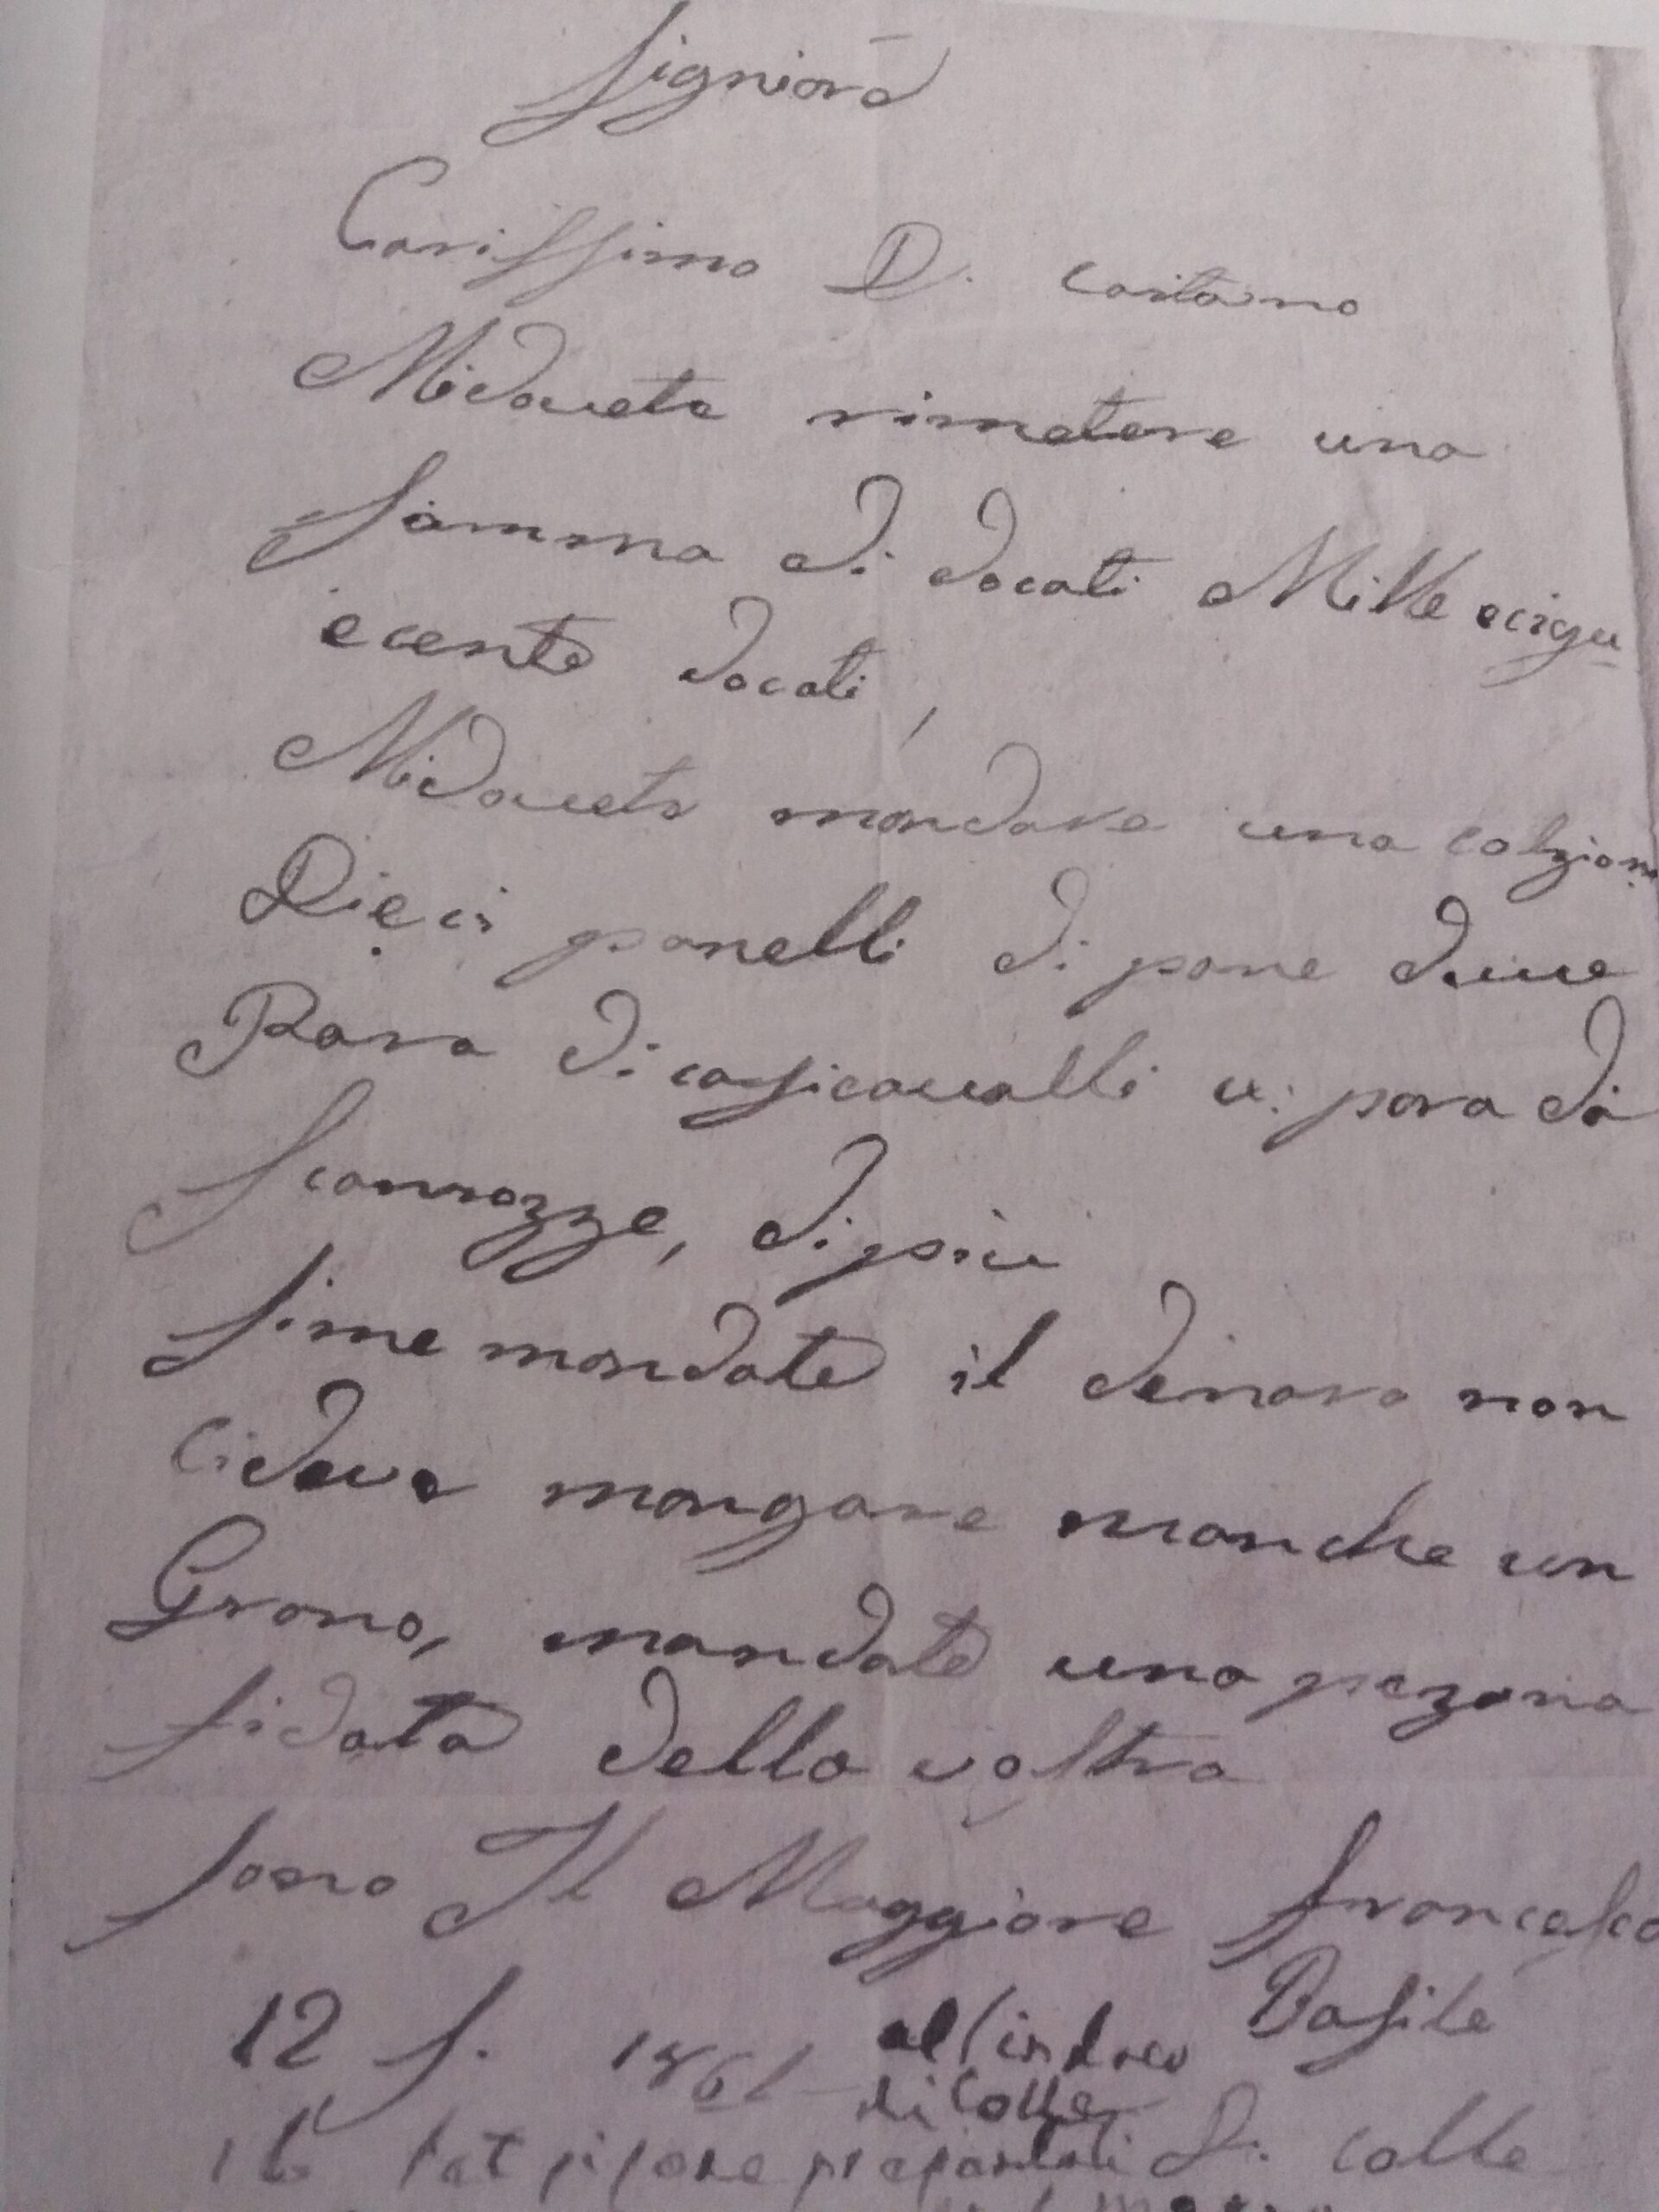 Signiora
Carissimo D. Caitano
Midovete rimetere una
Somma di docati Mille ecigu
ecento docati,
Midovete mandare una colzion
Dieci panelli di pane duue
Para di casicavalli vi para di
Scamozze, di piu
Sime mandate il denaro non
Cideve mangare manche un
Grano, mandate una pezona
fidata della vostra
Sono Il Maggiore francesco
Basile
12 S. 1861 al Sindaco
di Colle
il fat si sone presentati S. Colle